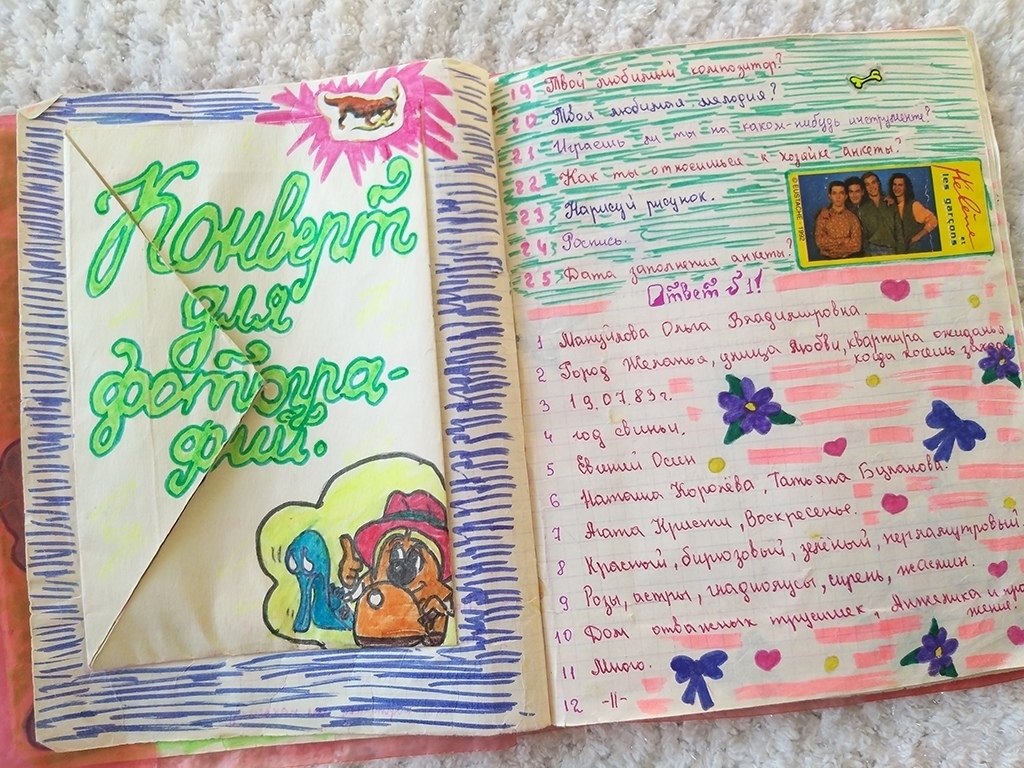 Конверт
для
фотогра-
фий.
19 Твой любимый композитор?
20 Твоя любимая мелодия?
21 Играешь ли ты на каком-нибудь инструменте?
22 Как ты относишься к хозяйке анкеты?
23 Нарисуй рисунок.
24 Роспись.
25 Дата заполнения анкеты?
© EUSTACHE - 1992
Hélène
et
les garçons
Ответ №1!
1 Мануйлова Ольга Владимировна.
2 Город Желанья, улица Любви, квартира ожиданья
когда косишь
3 19.07.83г.
4 год свиньи.
5 Евгений Осин
6 Наташа Королёва, Татьяна Буланова.
7 Агата Кристи, Воскресенье.
8 Красный, бирюзовый, зелёный, перламутровый
9 Розы, астры, гладиолусы, сирень, жасмин.
10 Дом отважных трусишек, Анжелика и про
жение!
11 Много.
12 -||-